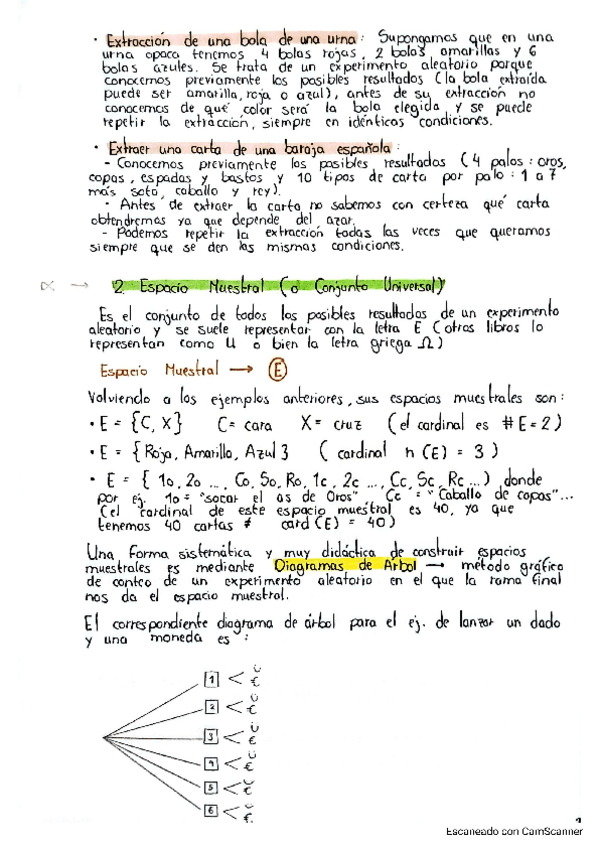 · Extracción de una bola de una urna: Supongamos que en una
urna opaca tenemos 4 bolas rojas, 2 bolas amarillas y 6
bolas azules. Se trata de un experimento aleatorio porque
conocemos previamente los posibles resultados (la bola extraída
puede ser amarilla, roja o azul), antes de su extracción no
conocemos de qué color será la bola elegida y se puede
repetir la extracción, siempre en idénticas condiciones.
· Extraer una carta de una baraja española:
- Conocemos previamente los posibles resultados (4 palos: oros,
copas, espadas y bastos y 10 tipos de carta por palo: 1 a 7
más sota, caballo y rey).
- Antes de extraer la carta no sabemos con certeza qué carta
obtendremos ya que depende del azar.
- Podemos repetir la extracción todas las veces que queramos
siempre que se den las mismas condiciones.
→ 2. Espacio Muestral (o Conjunto Universal)
Es el conjunto de todos los posibles resultados de un experimento
aleatorio y se suele representar con la letra E (otros libros lo
representan como U o bien la letra griega Ω)
Espacio Muestral → E
Volviendo a los ejemplos anteriores, sus espacios muestrales son:
· E = {C, X} C = cara X = cruz (el cardinal es #E = 2)
· E = {Roja, Amarilla, Azul} (cardinal n(E) = 3)
· E = {1o, 2o ..., Co, So, Ro, 1c, 2c ..., Cc, Sc, Rc ...) donde
por ej. 1o = "sacar el as de Oros", Cc = "Caballo de copas"...
(el cardinal de este espacio muestral es 40, ya que
tenemos 40 cartas ≠ card(E) = 40)
Una forma sistemática y muy didáctica de construir espacios
muestrales es mediante Diagramas de Árbol → método gráfico
de conteo de un experimento aleatorio en el que la rama final
nos da el espacio muestral.
El correspondiente diagrama de árbol para el ej. de lanzar un dado
y una moneda es:
1 < ü €
2 < ü €
3 < ü €
4 < ü €
5 < ü €
6 < ü €
Escaneado con CamScanner